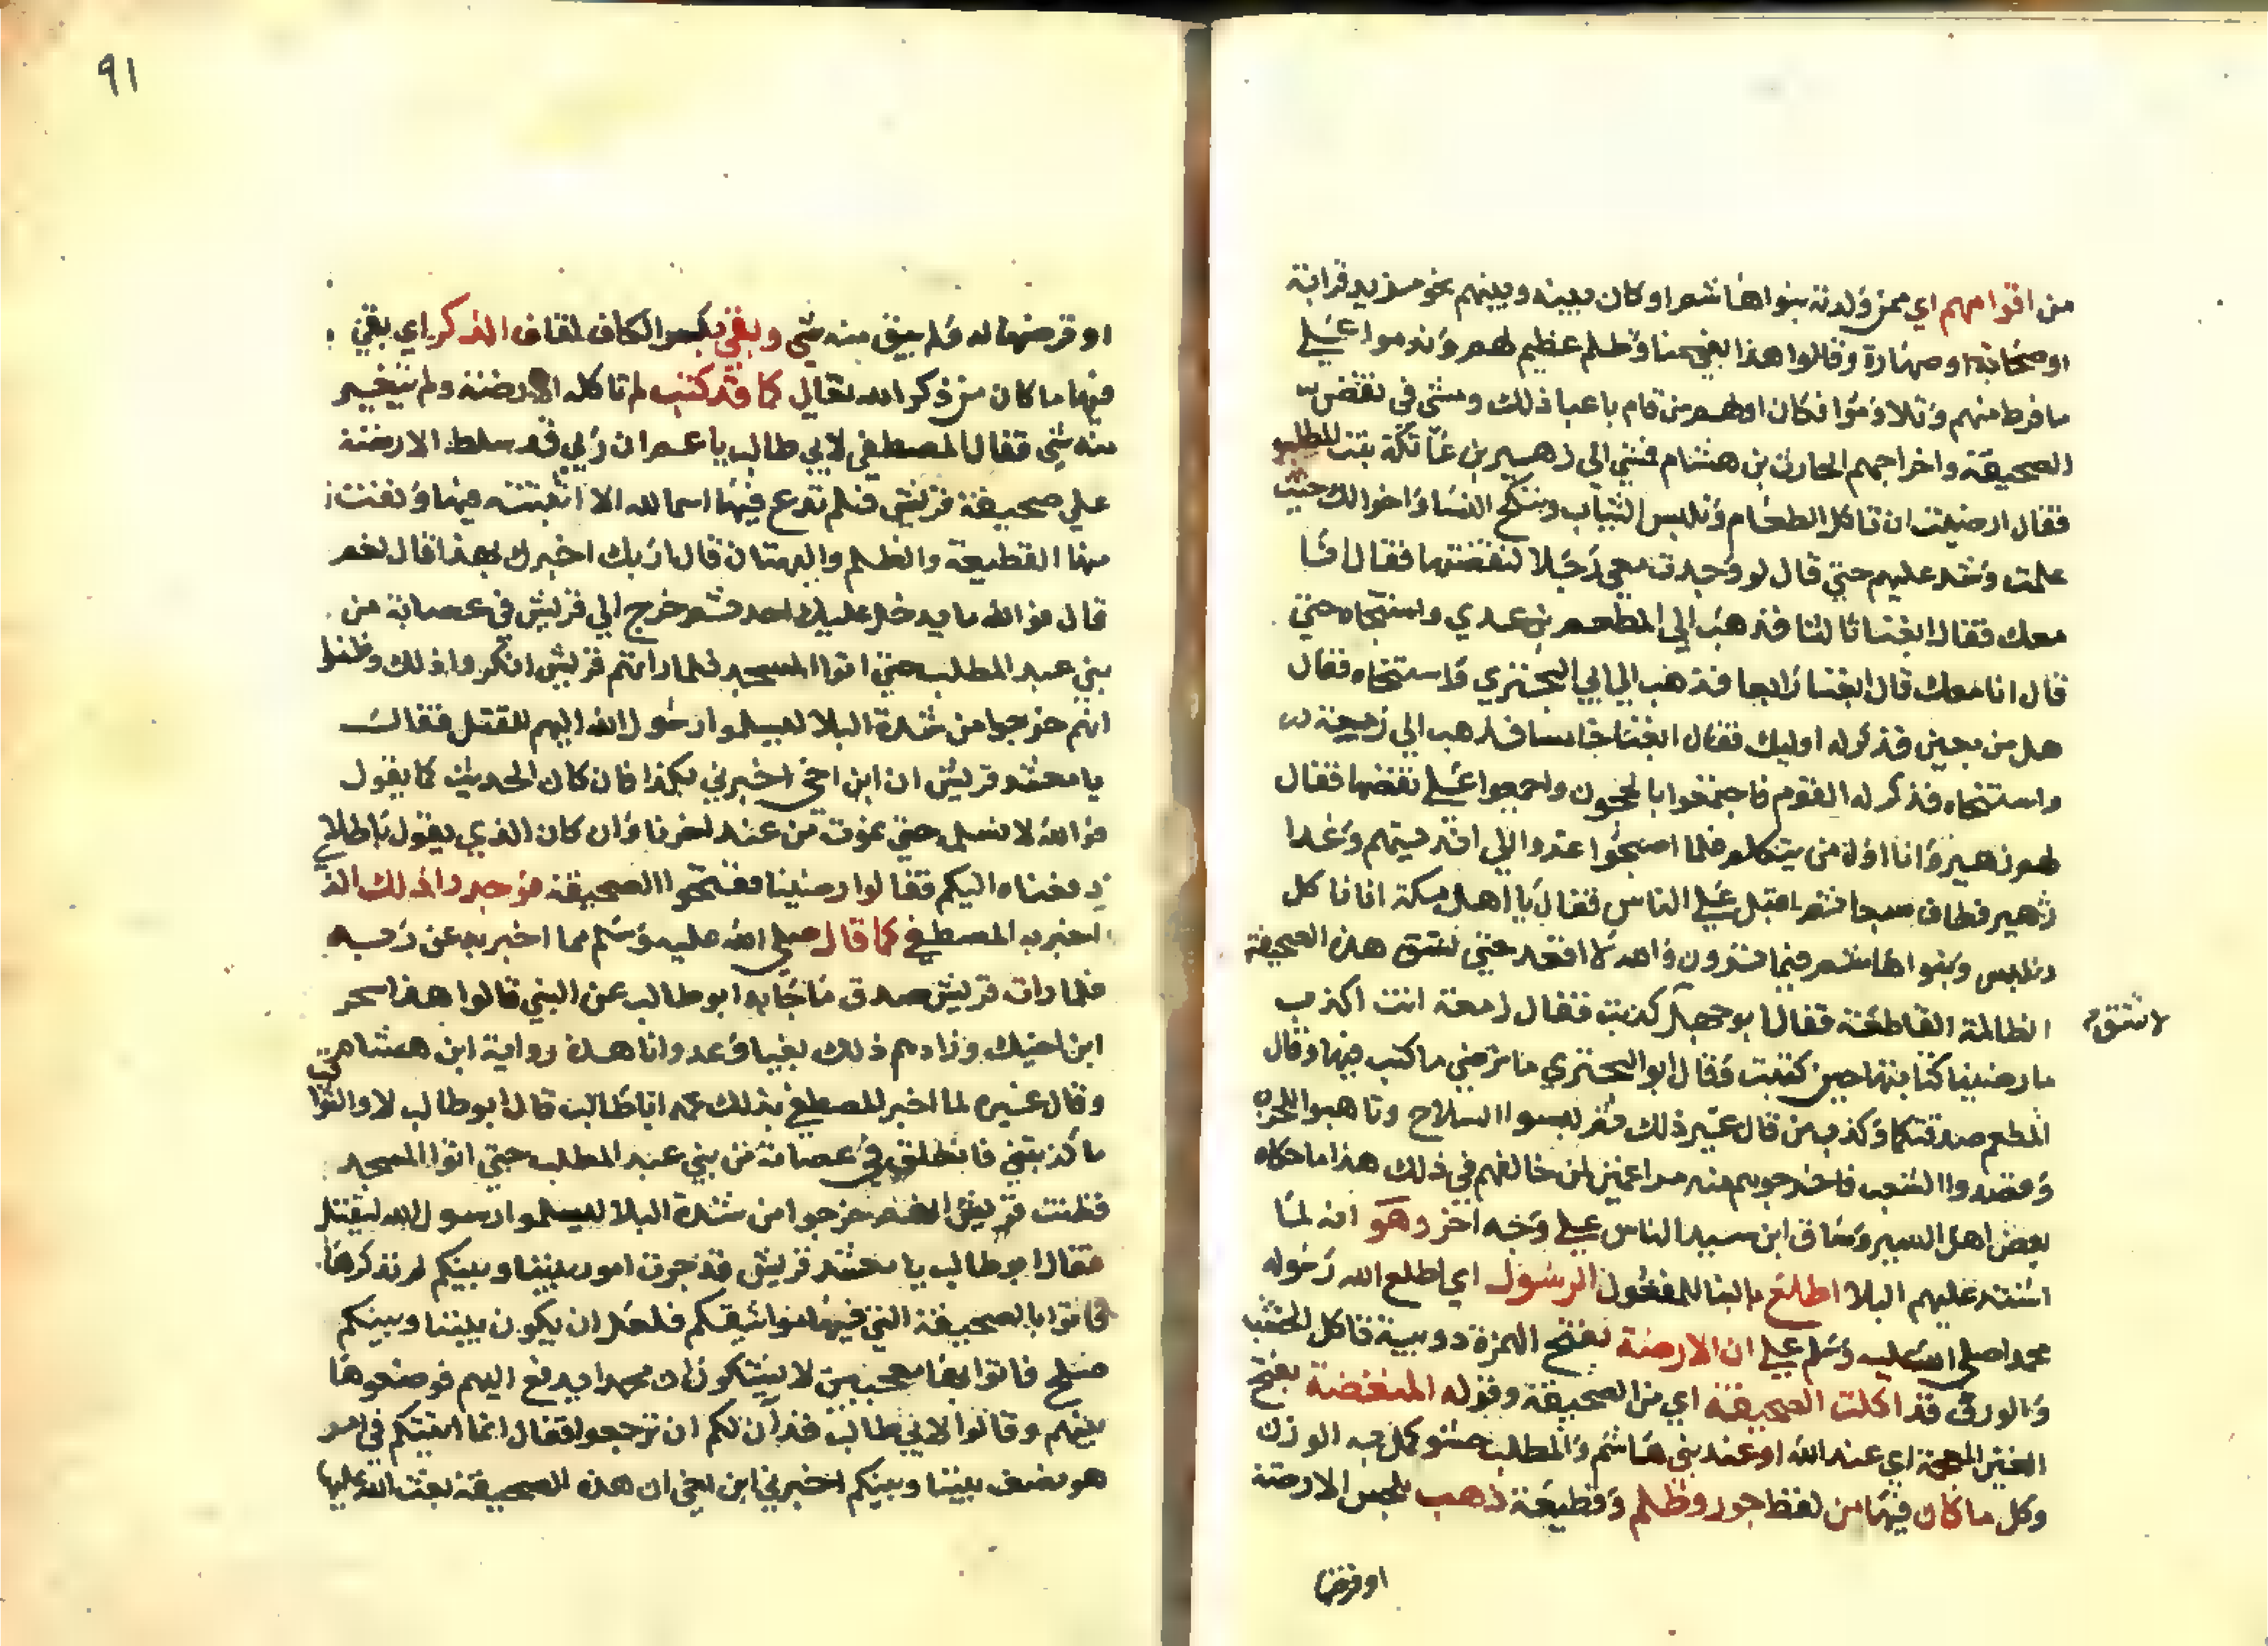 من اقوامهم اي ممن ولدته بنوا هاشم او كان بينه وبينهم نحو مزيد قرابة
او صحابة او صهارة وقالوا هذا بغي منا وظلم عظيم لهم وندموا علي
ما فرط منهم وتلاوموا فكان اولهم من قام باعبا ذلك ومشي في نقض
الصحيفة واخراجهم الحارث بن هشام فمشي الي زهير بن عاتكة بنت المطلب
فقال ارضيت ان تاكل الطعام وتلبس الثياب وتنكح النسا واخوالك حيث
علمت وشد عليهم حتي قال لو وجدت معي رجلا لنقضتها فقال انا
معك فقال ابغنا ثالثا فذهب الي المطعم بن عدي واستنخاه حتي
قال انا معك قال ابغنا رابعا فذهب الي ابي البختري فاستنخاه فقال
هل من معين فذكر له اوليك فقال ابغنا خامسا فذهب الي زمعة
واستنخاه فذكر له القوم فاجتمعوا بالحجون واجمعوا علي نقضها فقال
لهم زهير وانا اول من يتكلم فلما اصبحوا غدوا الي انديتهم وغدا
زهير فطاف سبعا ثم اقبل علي الناس فقال يا اهل مكة انا ناكل
ونلبس وبنوا هاشم فيما ترون والله لا اقعد حتي تشق هذه الصحيفة
الظالمة القاطعة فقال ابو جهل كذبت فقال زمعة انت اكذب
لا تشق
ما رضينا كتابتها حين كتبت وقال ابو البختري ما نرضي ما كتب فيها وقال
المطعم صدقتكما وكذب من قال غير ذلك ثم لبسوا السلاح وتاهبوا للحرب
وقصدوا الشعب فاخرجوهم منه مراغمين لمن خالفهم في ذلك هذا ما حكاه
بعض اهل السير وساق ابن سيد الناس علي وجه اخر وهو انه لما
اشتد عليهم البلا اطلع بالبنا للمفعول الرسول اي اطلع الله رسوله
محمدا صلي الله عليه وسلم علي ان الارضة بفتح الهمزة دويبة تاكل الخشب
والورق قد اكلت الصحيفة اي من الصحيفة وقوله المبغضة بفتح
الغين المعجمة اي عند الله او عند بني هاشم والمطلب حشو كمل به الوزن
وكل ما كان فيها من لفظ جور وظلم وقطيعة ذهب بلحس الارضة
او قرض
٩١
او قرضها له ولم يبق منه شي وبقي بكسر الكاف لقاف الذكر اي بقي
فيها ما كان من ذكر الله تعالي كما قد كتب لم تاكله الارضة ولم يتغير
منه شي فقال المصطفي لابي طالب يا عم ان ربي قد سلط الارضة
علي صحيفة قريش فلم تدع فيها اسما لله الا اثبتته فيها ونفت
منها القطيعة والظلم والبهتان قال اربك اخبرك بهذا قال نعم
قال فوالله ما يدخل عليك احد ثم خرج الي قريش في عصابة من
بني عبد المطلب حتي اتوا المسجد فلما راتهم قريش انكروا ذلك وظنوا
انهم خرجوا من شدة البلا ليسلموا رسول الله اليهم للقتل فقال
يا معشر قريش ان ابن اخي اخبرني بكذا فان كان الحديث كما يقول
فوالله لا نسلمه حتي نموت من عند اخرنا وان كان الذي يقول باطلا
دفعناه اليكم فقالوا رضينا ففتحوا الصحيفة فوجدوا ذلك الذي
اخبر به المصطفي كما قال صلي الله عليه وسلم مما اخبر به عن ربه
فلما رات قريش صدق ما جا به ابو طالب عن النبي قالوا هذا سحر
ابن اخيك وزادهم ذلك بغيا وعدوانا هذه رواية ابن هشام
وقال غيره لما اخبر المصطفي بذلك عمه ابا طالب قال ابو طالب لا والثواقب
ما كذبتني فانطلق في عصابة من بني عبد المطلب حتي اتوا المسجد
فظنت قريش انهم خرجوا من شدة البلا ليسلموا رسول الله ليقتل
فقال ابو طالب يا معشر قريش قد جرت امور بيننا وبينكم لم نذكرها
فاتوا بالصحيفة التي فيها مواثيقكم فلعل ان يكون بيننا وبينكم
صلح فاتوا بها معجبين لا يشكون ان محمدا يدفع اليهم فوضعوها
بينهم وقالوا لابي طالب قد آن لكم ان ترجعوا فقال انما اتيتكم في امر
هو نصف بيننا وبينكم اخبرني ابن اخي ان هذه الصحيفة بعث الله عليها